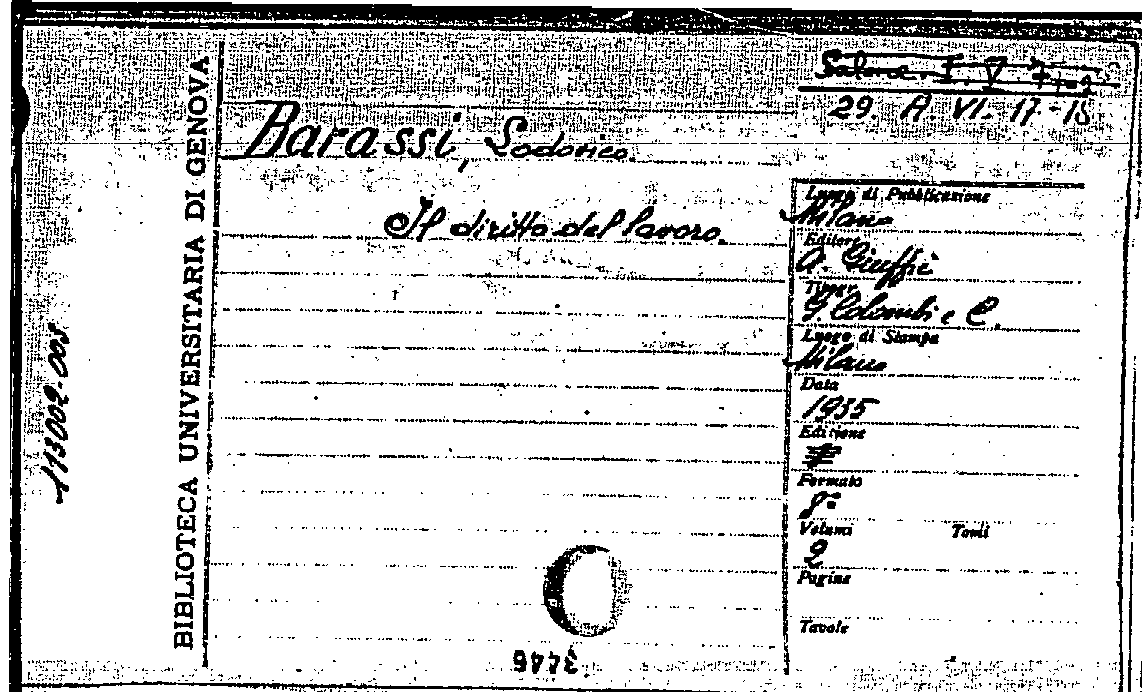 BIBLIOTECA UNIVERSITARIA DI GENOVA
29. A. VI. 17-18
Barassi, Lodovico.
Il diritto del lavoro.
Luogo di Pubblicazione
Milano
Editore
A. Giuffrè
Tipogr.
G. Colombi e C.
Luogo di Stampa
Milano
Data
1935
Edizione
Formato
8°
Volumi Tomi
2
Pagine
Tavole
3446